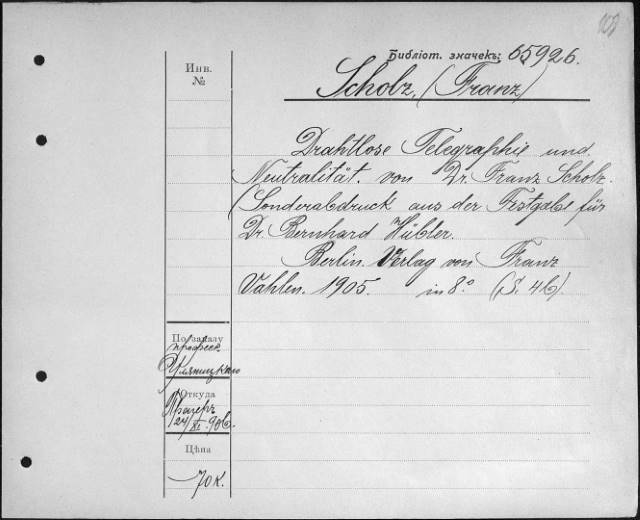 Библіот. значекъ: 65926.
Инв.
№
Scholz, (Franz)
Drahtlose Telegraphie und
Neutralität. von Dr. Franz Scholz.
(Sonderabdruck aus der Festgabe für
Dr. Bernhard Hübler.
Berlin. Verlag von Franz
Vahlen. 1905. in 8.° (S. 46).
По заказу
професс
Уляницкаго
Откуда
24/XI. 906.
Цѣна
70 к.